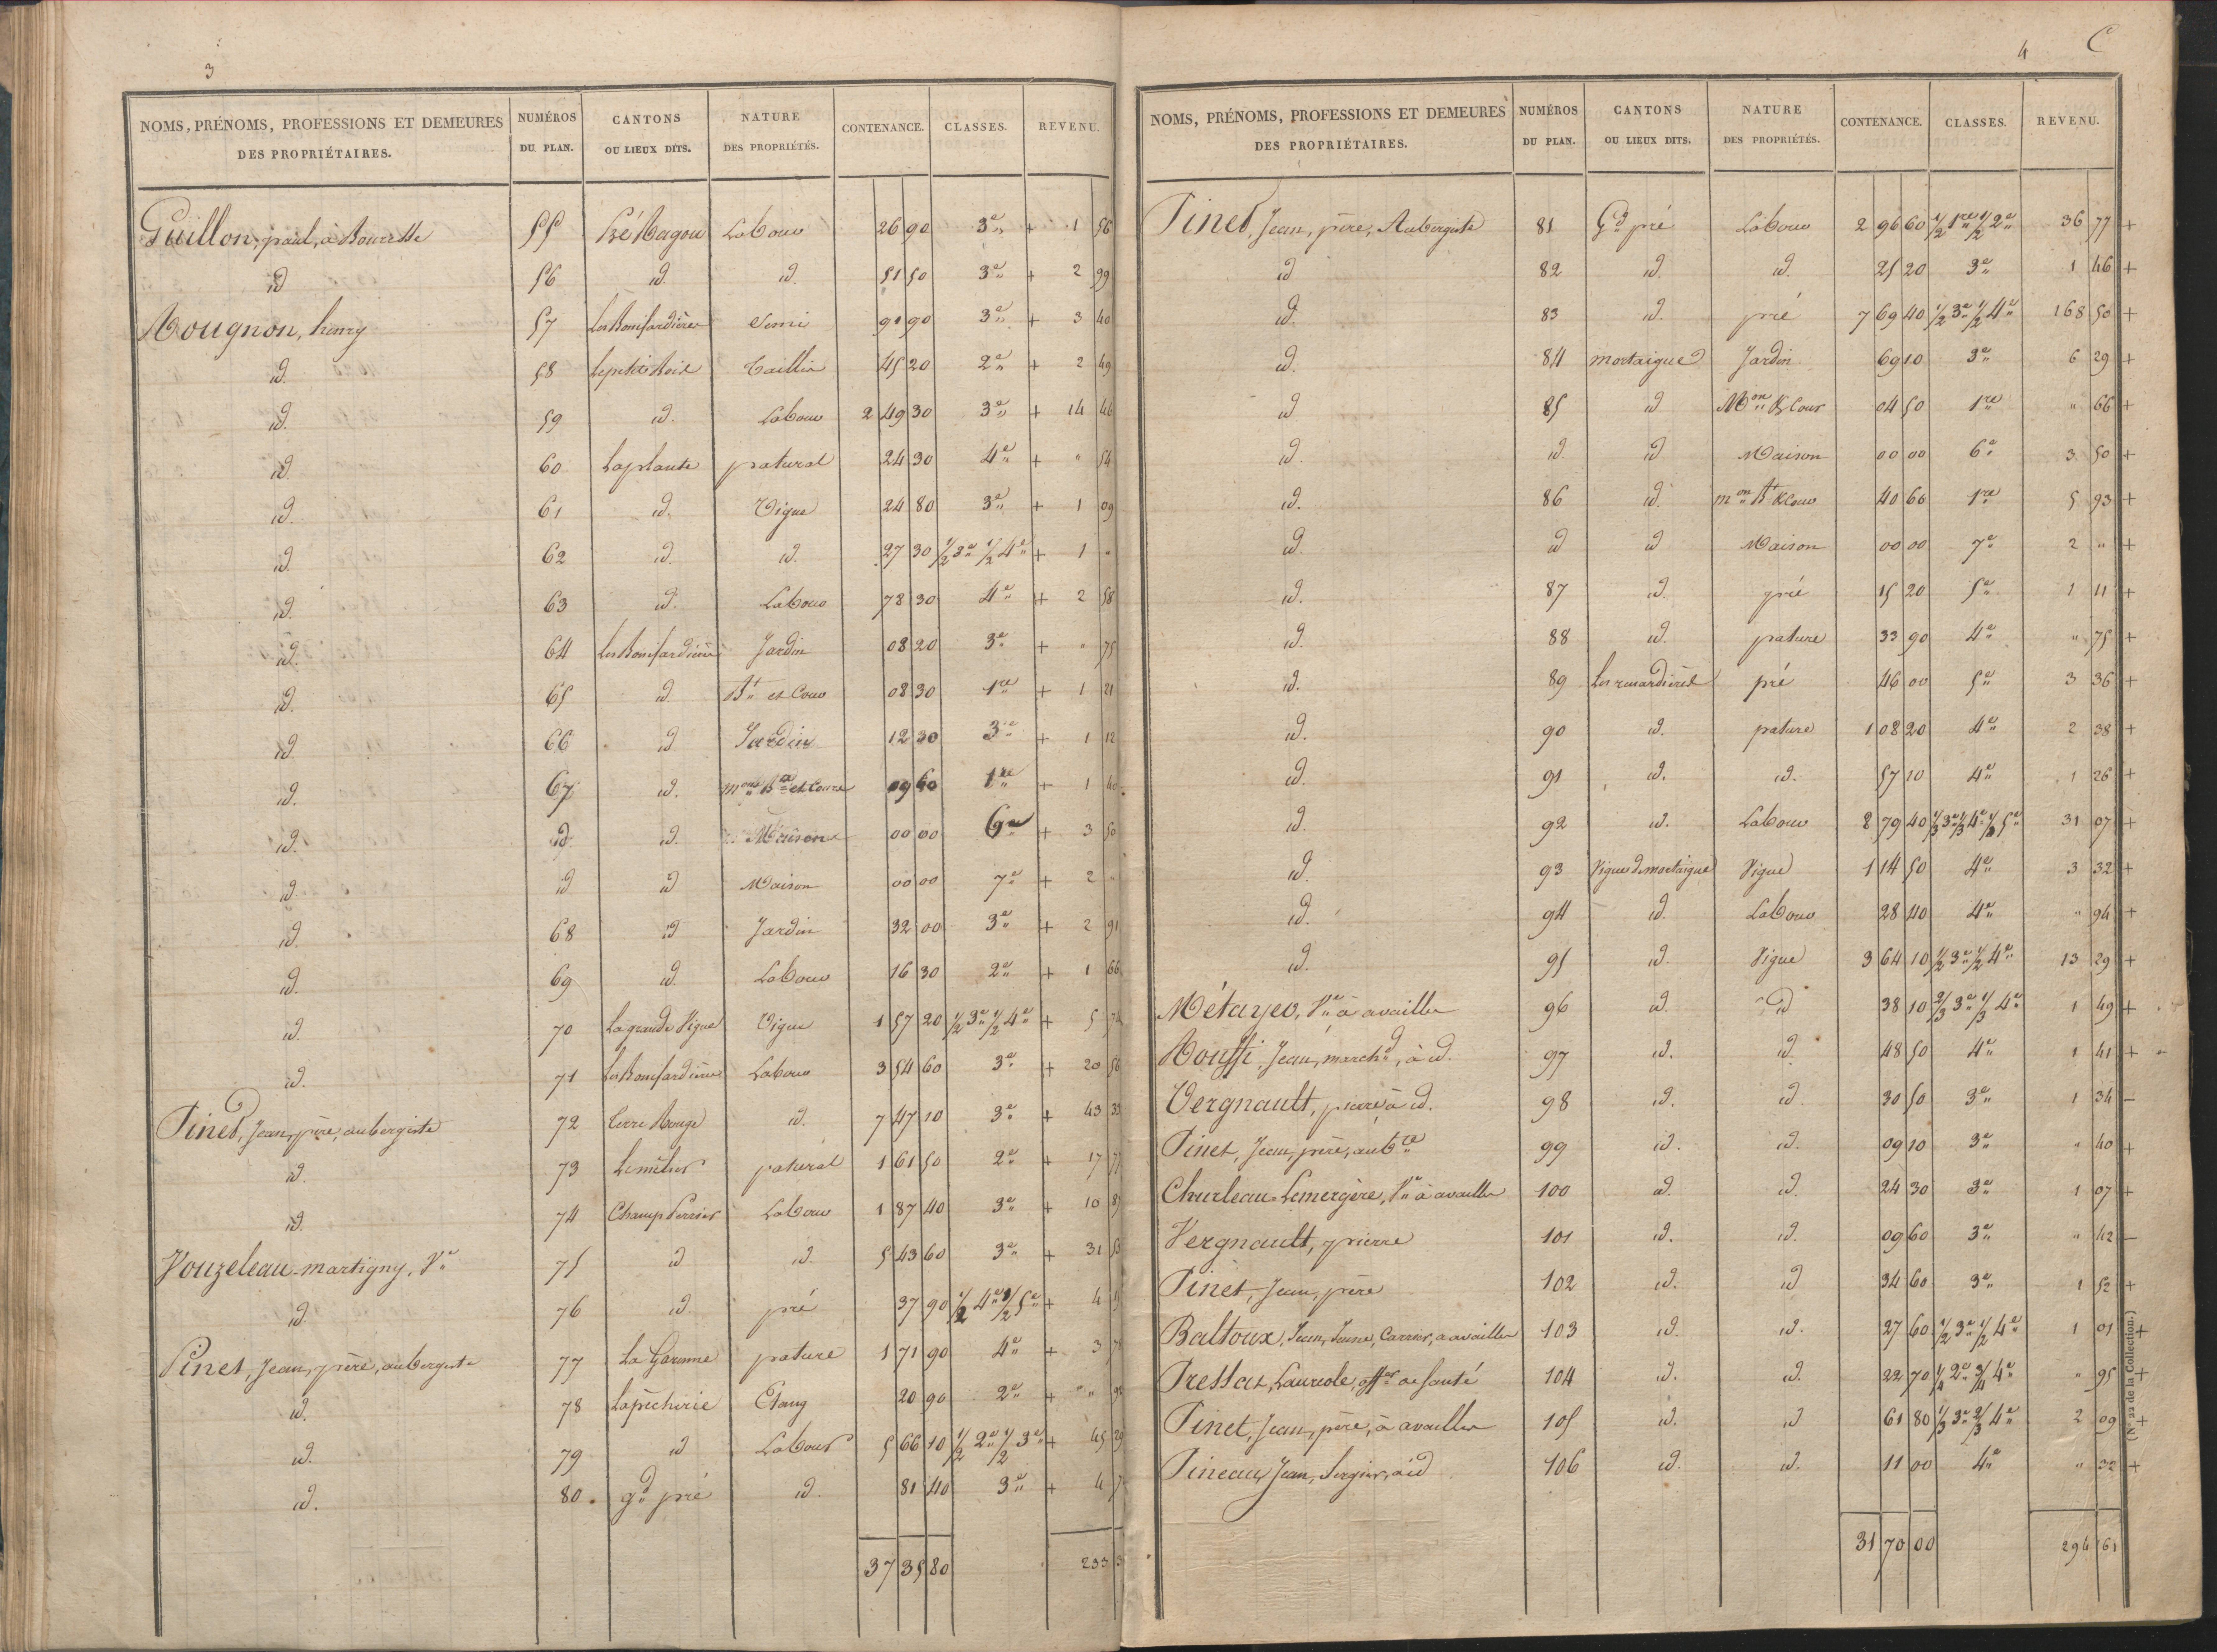 3
NOMS, PRÉNOMS, PROFESSIONS ET DEMEURES DES PROPRIÉTAIRES. NUMÉROS DU PLAN. CANTONS OU LIEUX DITS. NATURE DES PROPRIÉTÉS. CONTENANCE. CLASSES. REVENU.
Guillon, paul, à Bourette 55 Pré Magou Labour 26 90 3e + 1 56
id 56 id. id. 51 50 3e + 2 99
Rougnon, henry 57 Les Bonifardières Semi 90 90 3e + 3 40
id. 58 Le petit Bois Taillis 45 20 2e + 2 49
id. 59 id. Labour 2 49 30 3e + 14 46
id. 60 Laplante patural 24 30 4e + " 54
id. 61 id. Vigne 24 80 3e + 1 09
id. 62 id. id. 27 30 1/2 3e 1/2 4e + 1 "
id. 63 id. Labour 78 30 4e + 2 58
id. 64 Les Bonifardières Jardin 08 20 3e + " 75
id. 65 id. Bt et Cour 08 30 1re + 1 21
id. 66 id Jardin 12 30 3e + 1 12
id. 67 id. mon Bt et Cour 09 60 1re + 1 40
id. id. id. Maison 00 00 6e + 3 50
id. id id Maison 00 00 7e + 2 "
id. 68 id Jardin 32 00 3e + 2 91
id. 69 id. Labour 16 30 2e + 1 66
id. 70 La grande Vigne Vigne 1 57 20 1/2 3e 1/2 4e + 5 74
id. 71 Les Bonifardières Labour 3 54 60 3e + 20 56
Pinet, Jean, père, aubergiste 72 Terre Rouge id. 7 47 10 3e + 43 33
id. 73 patural 1 61 50 2e + 17 77
id. 74 Champ Perrier Labour 1 87 40 3e + 10 87
Vouzeleau-martigny, Ve 75 id id. 5 43 60 3e + 31 53
id. 76 id. pré 37 90 1/2 4e 1/2 5e + 4
Pinet, Jean, père, aubergiste 77 La Garenne pature 1 71 90 4e + 3 78
id. 78 Lapêcherie Etang 20 90 2e + " 92
id. 79 id Labour 5 66 10 1/2 2e 1/2 3e + 45 29
id. 80. gd pré id. 81 40 3e + 4 7
37 35 80 233 3
4 C
NOMS, PRÉNOMS, PROFESSIONS ET DEMEURES DES PROPRIÉTAIRES. NUMÉROS DU PLAN. CANTONS OU LIEUX DITS. NATURE DES PROPRIÉTÉS. CONTENANCE. CLASSES. REVENU.
Pinet, Jean, père, Aubergiste 81 Gd pré Labour 2 96 60 1/2 1re 1/2 2e 36 77 +
id 82 id. id. 25 20 3e 1 46 +
id. 83 id. pré 7 69 40 1/2 3e 1/2 4e 168 50 +
id. 84 mortaigue Jardin 69 10 3e 6 29 +
id 85 id Mon & Cour 04 50 1re " 66 +
id. id id Maison 00 00 6e 3 50 +
id. 86 id. mon Bt & Cour 40 60 1re 5 93 +
id. id id Maison 00 00 7e 2 " +
id. 87 id. pré 15 20 5e 1 11 +
id. 88 id. pature 33 90 4e " 75 +
id. 89 Les renardières pré 46 00 5e 3 36 +
id. 90 id. pature 1 08 20 4e 2 38 +
id. 91 id. id. 57 10 4e 1 26 +
id. 92 id. Labour 8 79 40 1/3 3e 1/3 4e 1/3 5e 31 07 +
id. 93 Vignes de mortaigue Vigne 1 14 50 4e 3 32 +
id. 94 id. Labour 28 40 4e " 94 +
id. 95 id. Vigne 3 64 10 1/2 3e 1/2 4e 13 29 +
Métayer, Ve à availle 96 id. id 38 10 2/3 3e 1/3 4e 1 49 +
Rouffi, Jean, marchd, à id. 97 id. id. 48 50 4e 1 41 +
Vergnault, pierre à id. 98 id. id. 30 50 3e 1 34 –
Pinet, Jean, père, aubte 99 id. id. 09 10 3e " 40 +
Churleau-Lemergère, Ve à availle 100 id. id. 24 30 3e 1 07 +
Vergnault, pierre 101 id. id. 09 60 3e " 42 –
Pinet, Jean, père 102 id. id 34 60 3e 1 52 +
Baltoux, Jean, Jeune, Carrier, à availle 103 id. id. 27 60 1/2 3e 1/2 4e 1 01 +
Pressac, Laureole, offer de santé 104 id. id. 22 70 1/4 2e 3/4 4e " 95 +
Pinet, Jean, père, à availle 105 id. id 61 80 1/3 3e 2/3 4e 2 09 +
Pineau, Jean, Sergier, à id 106 id. id. 11 00 4e " 32 +
31 70 00 294 61
(N° 22 de la Collection.)